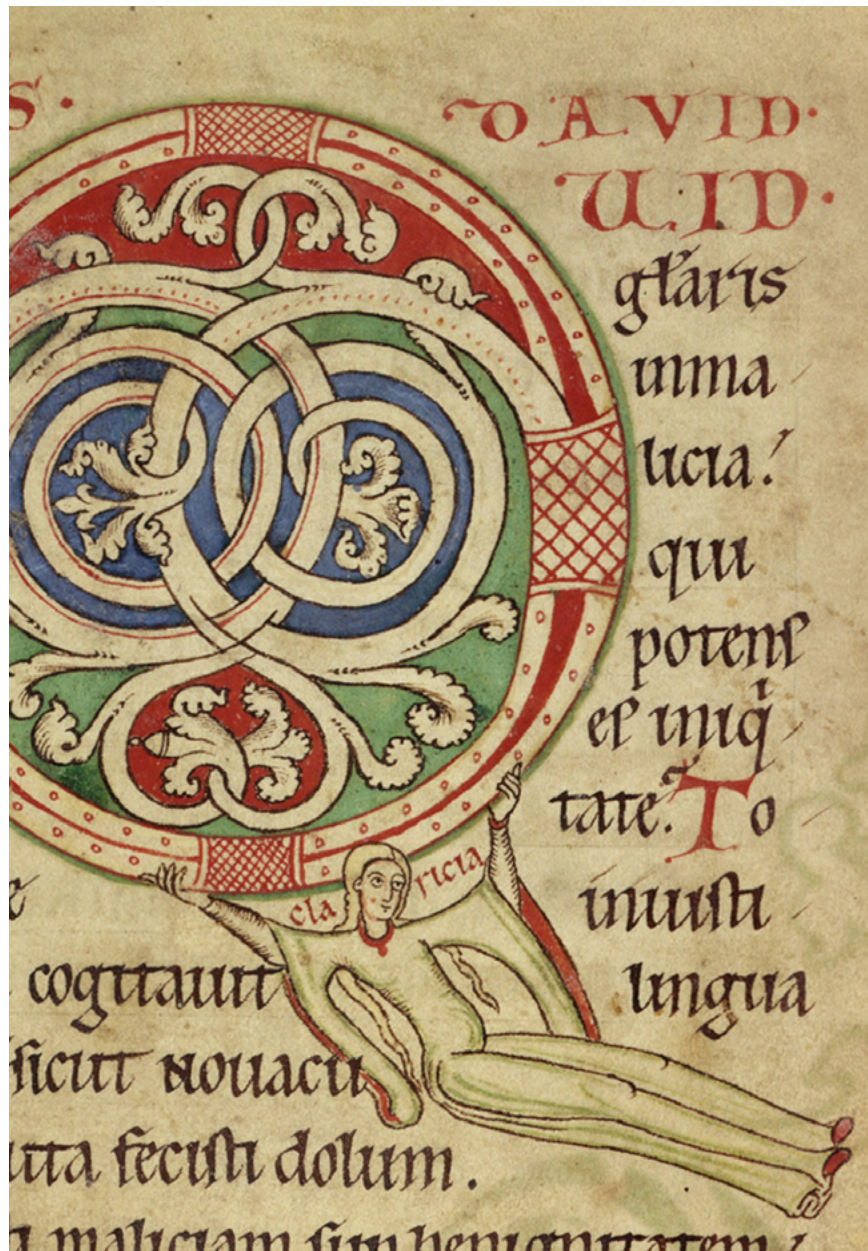 S.
DAVID.
UID.
głaris
in ma
licia!
qui
potens
es iniq̇
tate. To
claricia
in iusti
cogitauit lingua
sicut nouacu
fecisti dolum.
maliciam sup benignitatem